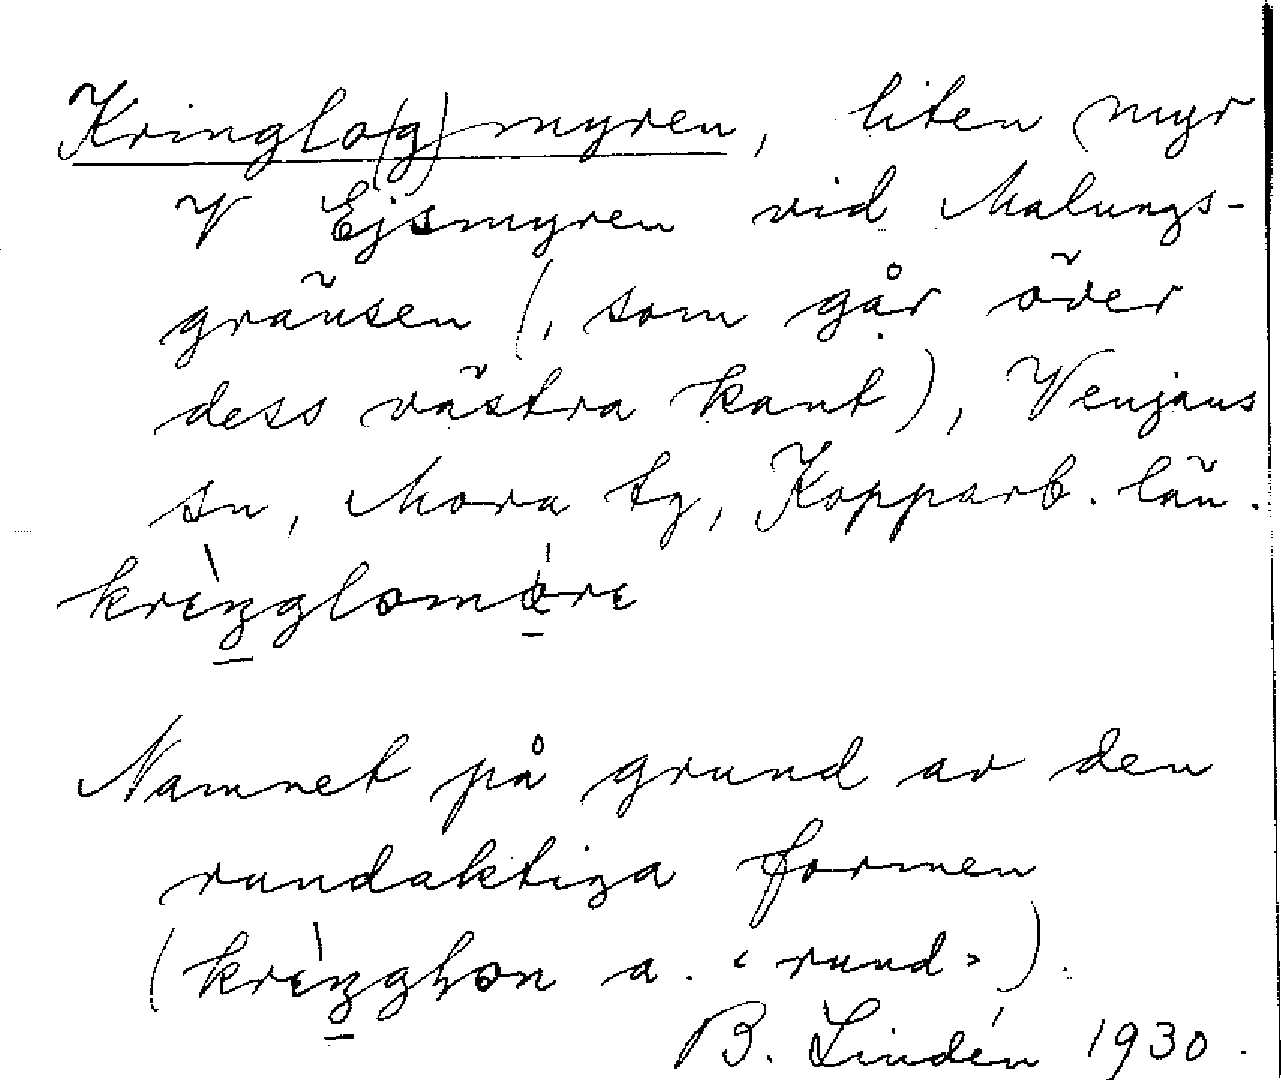 Kringlo(g)myren, liten myr
V Ejsmyren vid Malungs-
gränsen (, som går över
dess västra kant), Venjans
sn, Mora tg, Kopparb. län.
Namnet på grund av den
rundaktiga formen
a. ‹rund›).
B. Lindén 1930.